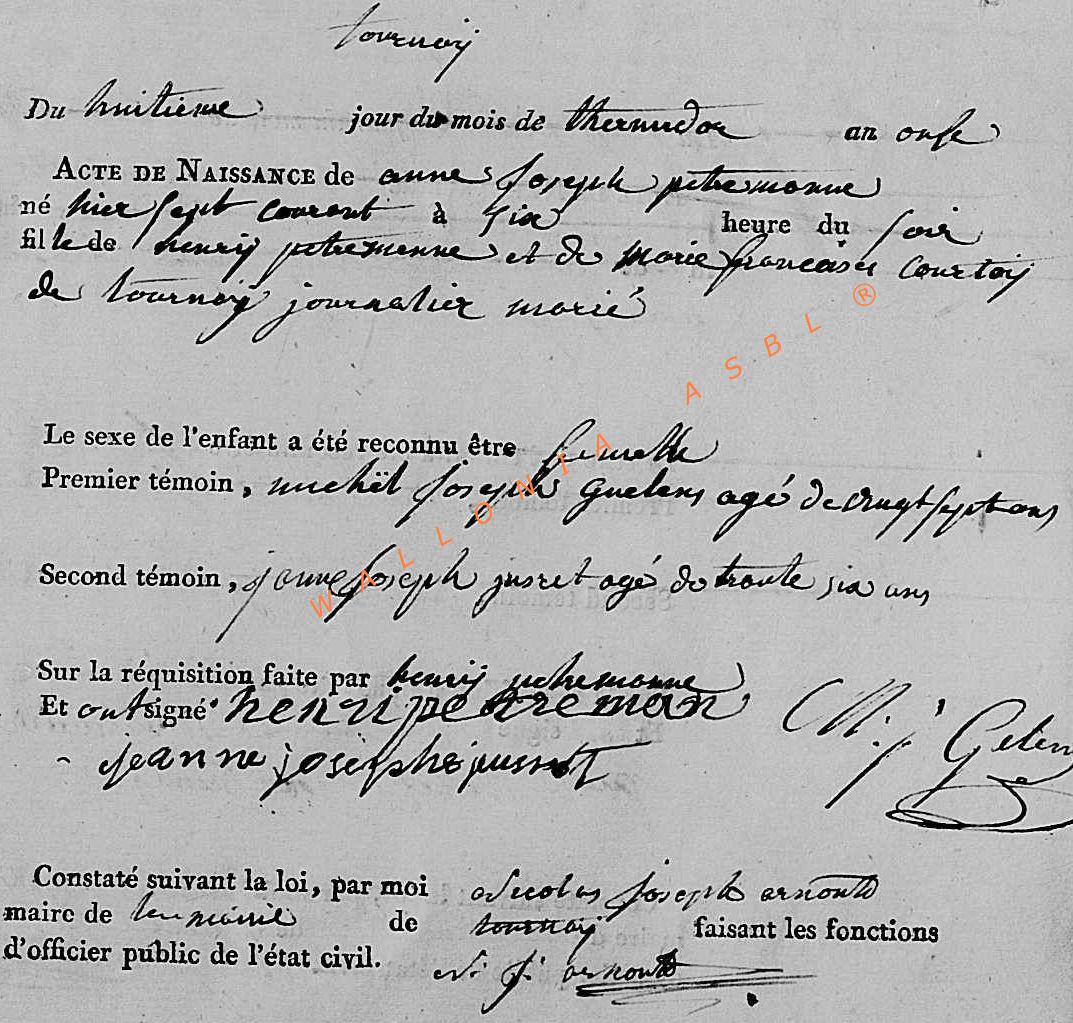 tournay
Du huitieme jour du mois de thermidor an onse
ACTE DE NAISSANCE de anne Joseph petremanne
né hier sept courant à six heure du soir
fille de henry petremenne et de marie francaise courtoy
de tournay journalier marié
WALLONIA ASBL ®
Le sexe de l'enfant a été reconnu être femelle
Premier témoin, michël Joseph Guelens agé de vingt sept ans
Second témoin, janne Joseph jusret agé de trente six ans
Sur la réquisition faite par henry petremanne
Et ont signé henri petreman
jeanne josephe jusret M. j. Gelen
Constaté suivant la loi, par moi Nicolas Joseph arnould
maire de de tournay faisant les fonctions
d'officier public de l'état civil. N. J. arnould